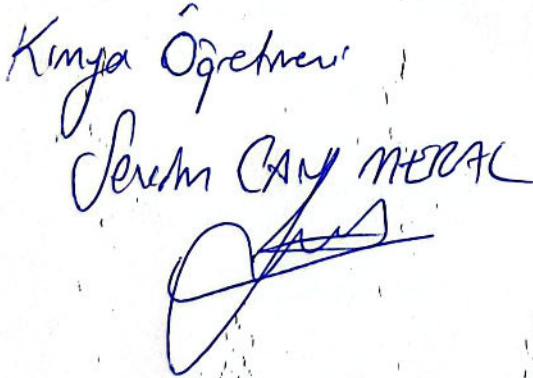 Kimya Öğretmeni
CAN MERAL